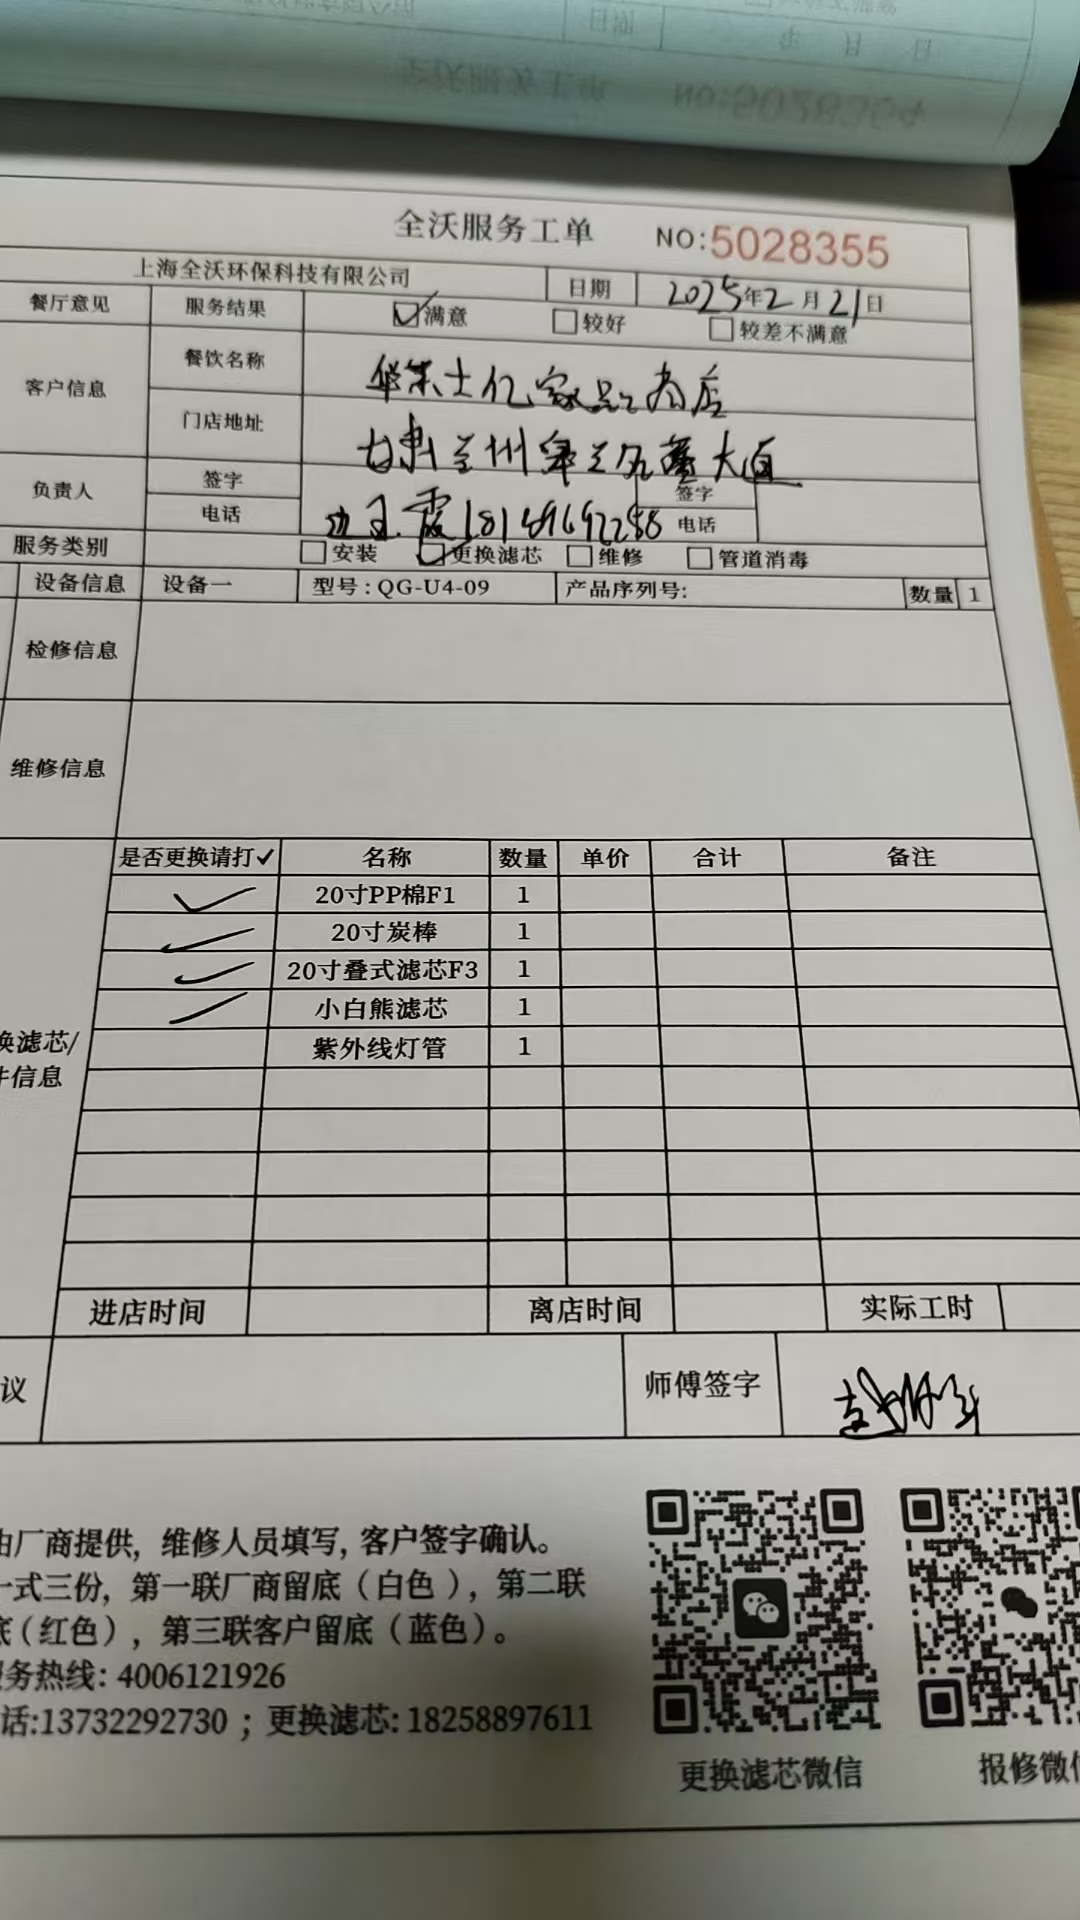 全沃服务工单 NO:5028355
上海全沃环保科技有限公司 日期 2025年2月21日
餐厅意见 服务结果 ☑满意 □较好 □较差不满意
客户信息 餐饮名称 华莱士亿家品商店
门店地址 甘肃兰州皋兰名藩大道
负责人 签字 签字
电话 电话
服务类别 □安装 ☑更换滤芯 □维修 □管道消毒
设备信息 设备一 型号:QG-U4-09 产品序列号: 数量 1
检修信息
维修信息
是否更换请打✓ 名称 数量 单价 合计 备注
✓ 20寸PP棉F1 1
✓ 20寸炭棒 1
✓ 20寸叠式滤芯F3 1
✓ 小白熊滤芯 1
换滤芯/ 紫外线灯管 1
件信息
进店时间 离店时间 实际工时
议 师傅签字
由厂商提供, 维修人员填写, 客户签字确认。
一式三份, 第一联厂商留底(白色), 第二联
底(红色), 第三联客户留底(蓝色)。
服务热线: 4006121926
话:13732292730 ; 更换滤芯: 18258897611
更换滤芯微信 报修微信